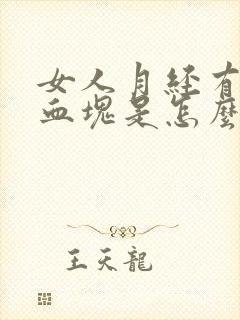 女人月经有
血塊是怎麼
王天龍